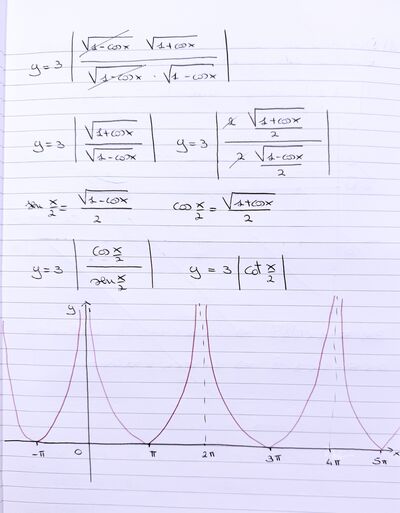 y = 3 | √(1-cosx) √(1+cosx) / √(1-cosx) · √(1-cosx) |
y = 3 | √(1+cosx) / √(1-cosx) | y = 3 | 2 √(1+cosx)/2 / 2 √(1-cosx)/2 |
sin x/2 = √(1-cosx)/2 cos x/2 = √(1+cosx)/2
y = 3 | cos x/2 / sen x/2 | y = 3 | cot x/2 |
y
-π 0 π 2π 3π 4π 5π x